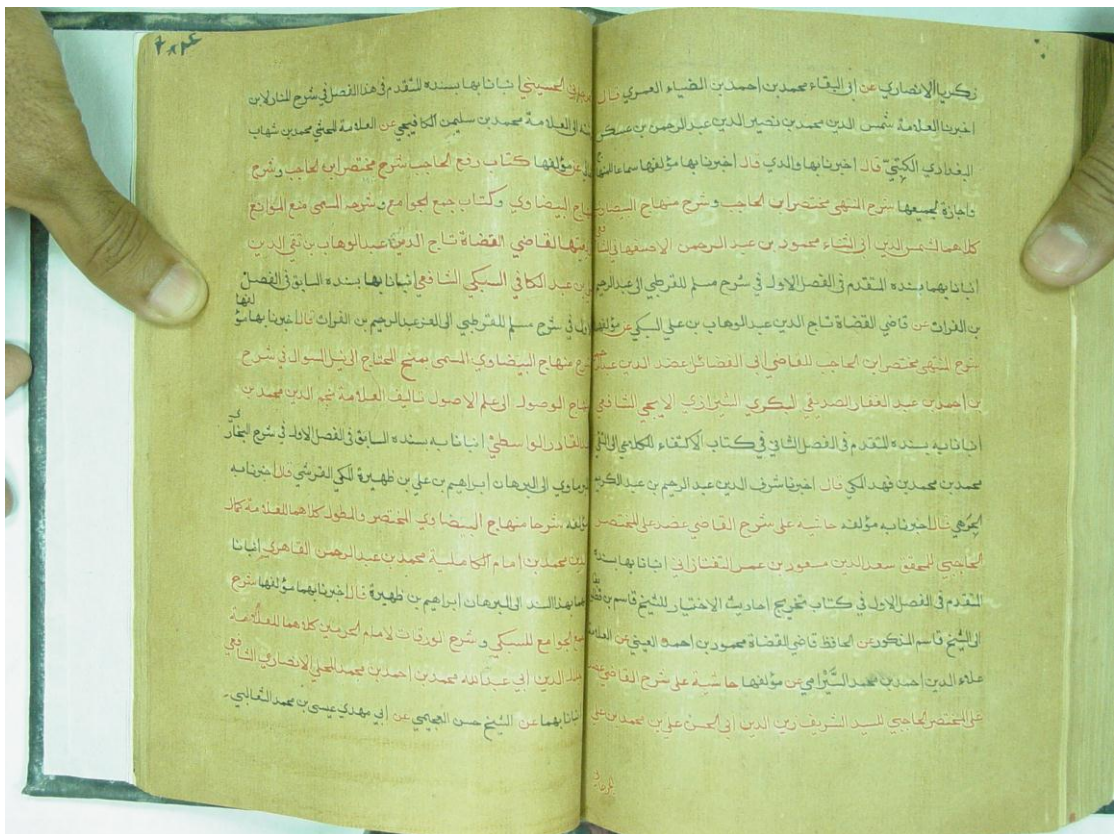 زكريا الانصاري عن ابي البقاء محمد بن احمد بن الضياء العمري قال
اخبرنا العلامة شمس الدين محمد بن نصير الدين عبد الرحمن بن عسكر
البغدادي قال اخبرنا بها والدي قال اخبرنا بها مؤلفها سماعا
واجازة لجميعها شرح المنتهى مختصر ابن الحاجب وشرح منهاج البيضاوي
كلاهما لشمس الدين ابي الثناء محمود بن عبد الرحمن الاصفهاني
انبانا بهما بسنده المتقدم في الفصل الاول في شرح مسلم للقرطبي الى عبد الرحيم
بن الفرات عن قاضي القضاة تاج الدين عبد الوهاب بن علي السبكي عن مؤلفها
شرح المنتهى مختصر ابن الحاجب للقاضي ابي الفضائل عضد الدين
بن احمد بن عبد الغفار الصديقي البكري الشيرازي الايجي الشافعي
انبانا به بسنده المتقدم في الفصل الثاني في كتاب الاكتفاء للكلاعي الى التقي
محمد بن محمد بن فهد المكي قال اخبرنا شرف الدين عبد الرحيم بن عبد الكريم
الجرهي قال اخبرنا به مؤلفه حاشيه على شرح القاضي عضد على المختصر
الحاجبي للمحقق سعد الدين مسعود بن عمر التفتازاني انبانا بها بسنده
المتقدم في الفصل الاول في كتاب تخريج احاديث الاختيار للشيخ قاسم بن
الى الشيخ قاسم المذكور عن الحافظ قاضي القضاة محمود بن احمد العيني عن العلامة
علاء الدين احمد بن محمد السيرامي عن مؤلفها حاشية على شرح القاضي عضد
على المختصر الحاجبي للسيد الشريف زين الدين ابي الحسن علي بن محمد بن علي
الحسيني انبانا بها بسنده المتقدم في هذا الفصل في شرح المنار لابن
الى العلامة محمد بن سليمن الكافيجي عن العلامة محمد بن شهاب
عن مؤلفها كتاب رفع الحاجب شرح مختصر ابن الحاجب وشرح
منهاج البيضاوي وكتاب جمع الجوامع وشرحه المسمى منع الموانع
القاضي القضاة تاج الدين عبد الوهاب بن تقي الدين
بن عبد الكافي السبكي الشافعي انبانا بها بسنده السابق في الفصل
الاول في شرح مسلم للقرطبي الى العز عبد الرحيم بن الفرات قال اخبرنا بها مؤلفها
شرح منهاج البيضاوي المسمى بمنح المحتاج الى نيل السول في شرح
منهاج الوصول الى علم الاصول تاليف العلامة نجم الدين محمد بن
عبد القادر الواسطي انبانا به بسنده السابق في الفصل الاول في شرح البخاري
للبرماوي الى البرهان ابراهيم بن علي بن ظهيرة المكي القرشي قال اخبرنا به
مؤلفه شرحا منهاج البيضاوي المختصر والمطول كلاهما للعلامة كمال
الدين محمد بن امام الكاملية محمد بن عبد الرحمن القاهري انبانا
بهما بهذا السند الى البرهان ابراهيم بن ظهيرة قال اخبرنا بهما مؤلفها شرح
جمع الجوامع للسبكي وشرح الورقات لامام الحرمين كلاهما للعلامة
جلال الدين ابي عبد الله محمد بن احمد بن محمد المحلي الانصاري الشافعي
انبانا بهما عن الشيخ حسن العجيمي عن ابي مهدي عيسى بن محمد الثعالبي